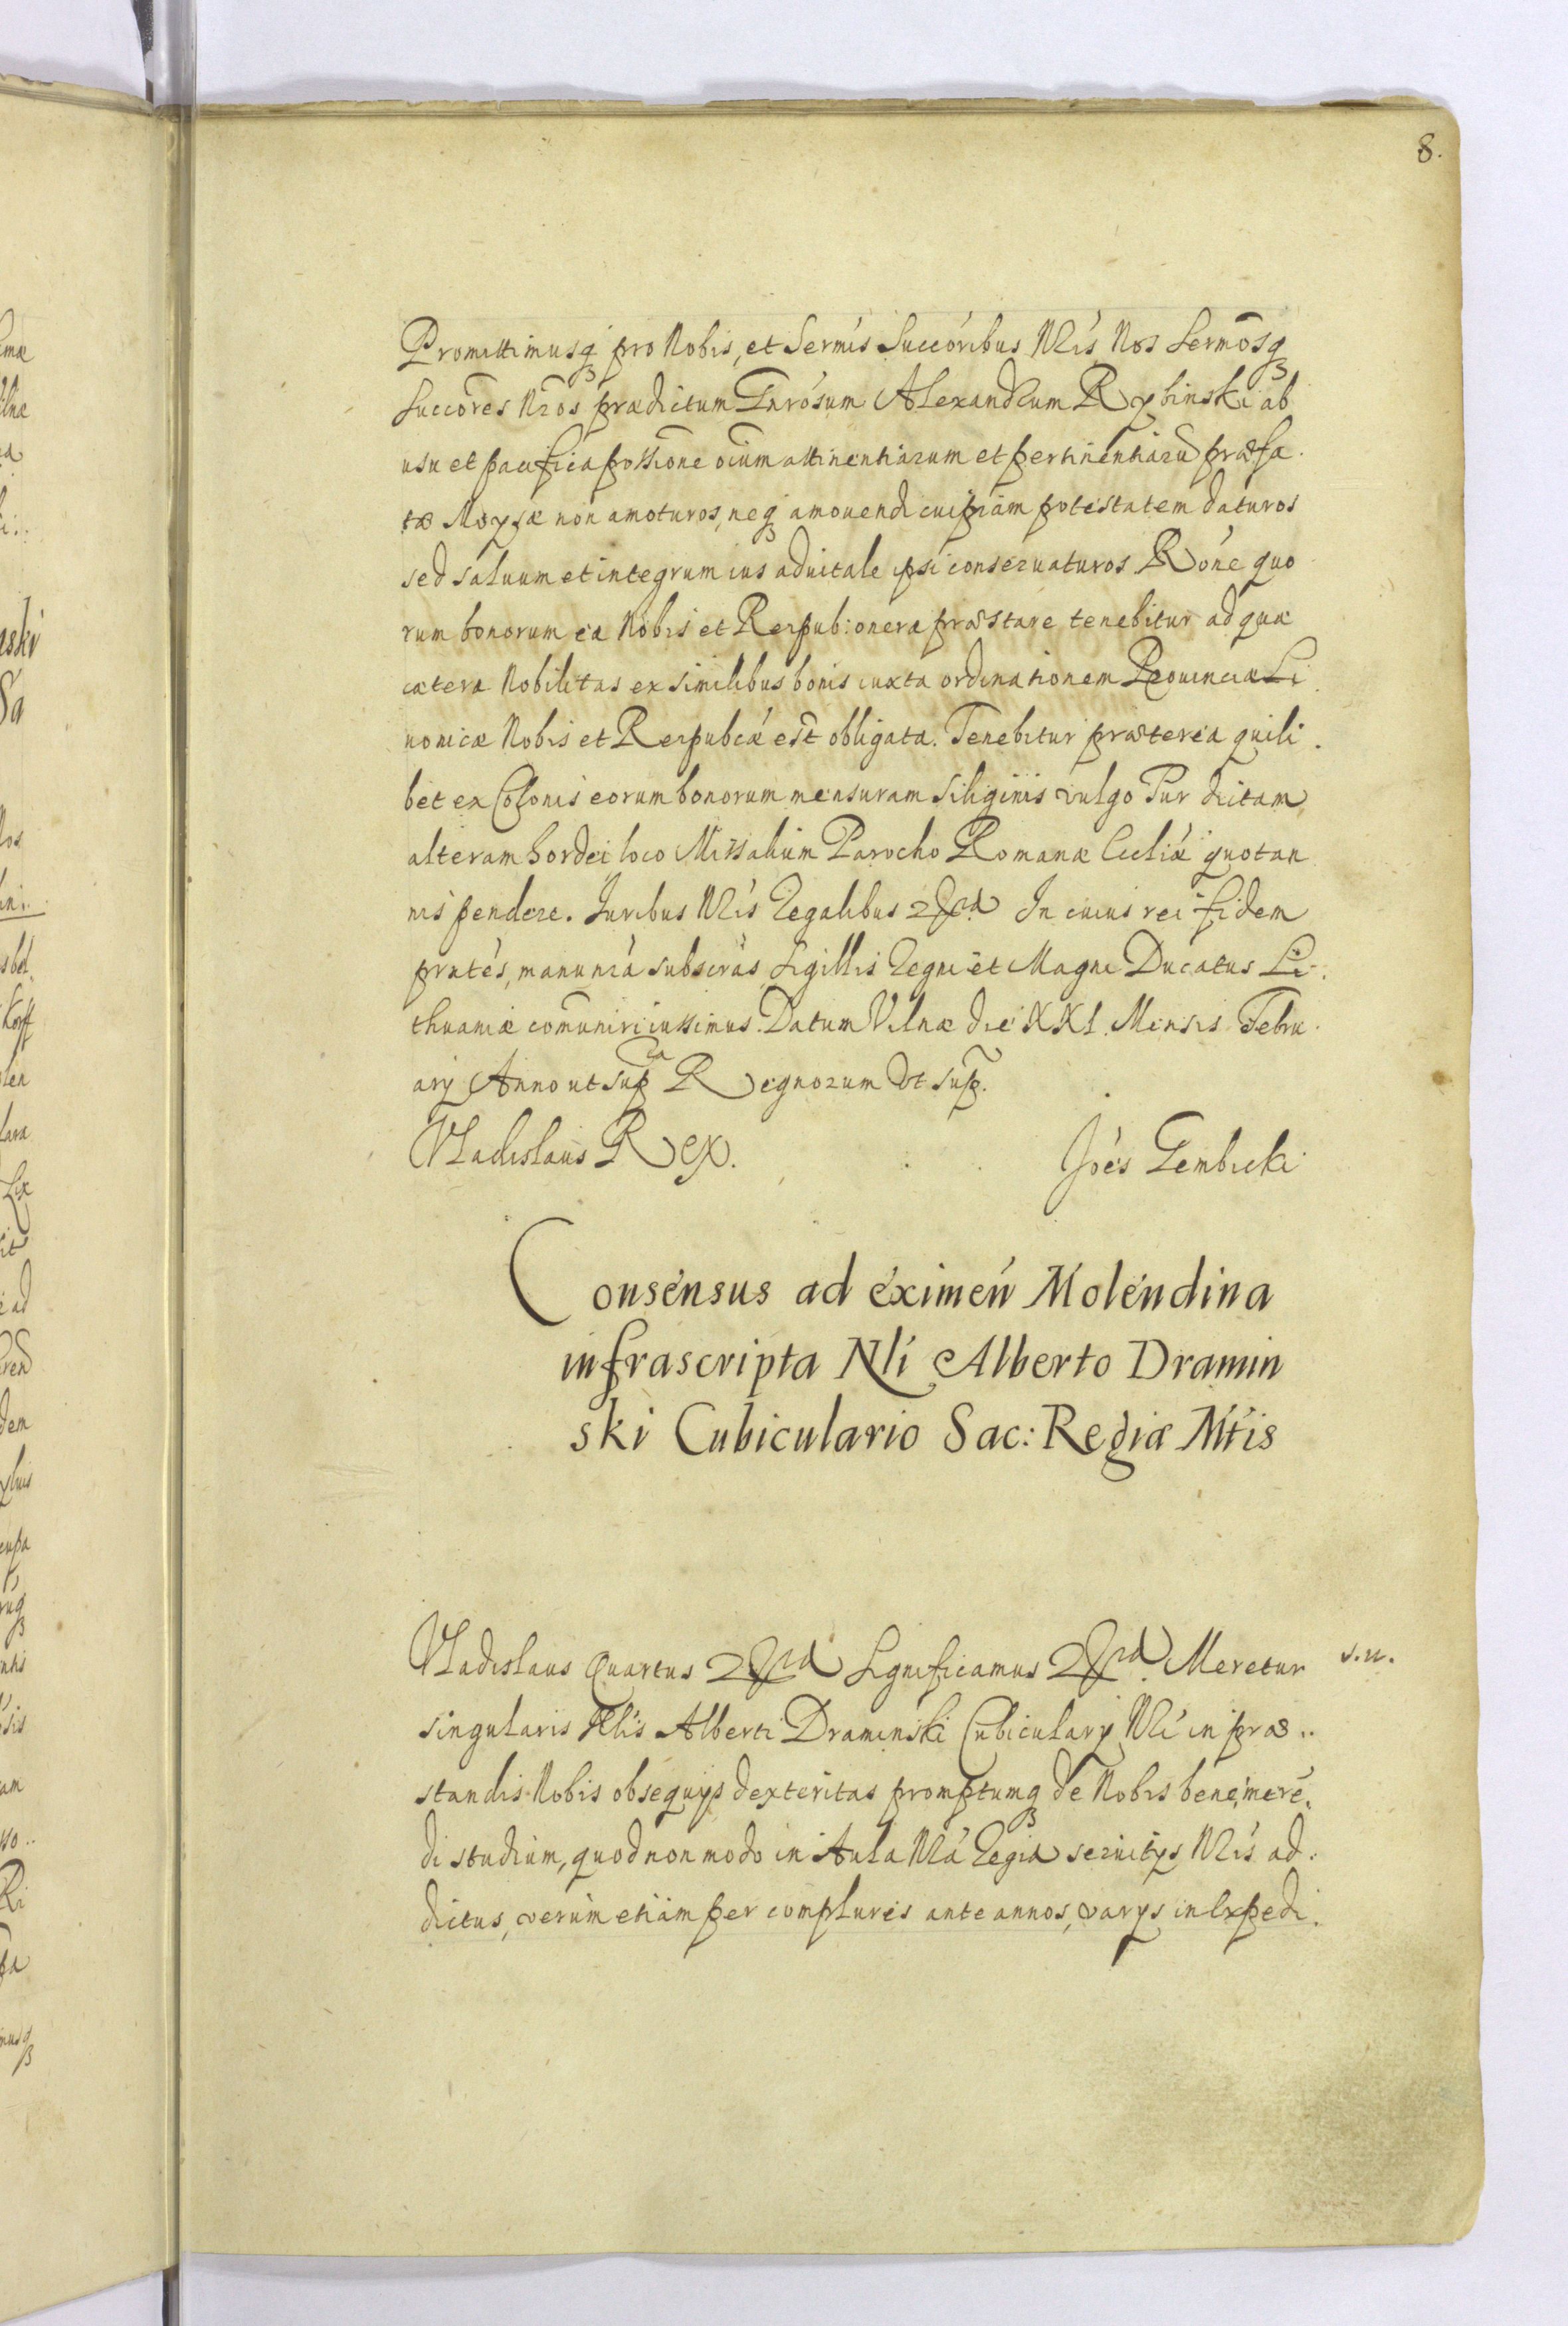 8.
Promittimusq₃ pro Nobis, et Sermis Succóribus Nris Nos Sermosq₃
Succores Nros prædictum Gnrosum Alexandrum Rybinski ab
usu et pacifica possione oium attinentiarum et pertinentiarũ præfa.
tæ Moysæ non amoturos, neq₃ amouendi cuipiam potestatem daturos
sed saluum et integrum ius aduitale ipsi conseruaturos Róne quo
rum bonorum ea Nobis et Reipub: onera præstare tenebitur ad quæ
cætera Nobilitas ex similibus bonis iuxta ordinationem Prouinciæ Li
uonicæ Nobis et Reipubcæ est obligata. Tenebitur præterea quili.
bet ex Colonis eorum bonorum mensuram siliginis vulgo Pur dictam
alteram hordei loco Missalium Parocho Romanæ Eccliæ quotan
nis pendere. Iuribus Nris Regalibus In cuius rei fidem
prntés, manu nrá subscrás Sigillis Regni et Magni Ducatus Li:
thuaniæ comuniri iussimus. Datum Vilnæ die XXI. Mensis Febru.
arij Anno ut supra Regnorum Vt sup.
Vladislaus Rex. Joés Gembicki
Consensus ad eximeń Molendina
infrascripta Nli Alberto Dramin
ski Cubiculario Sac: Regiæ Mtis
Vladislaus Quartus Significamus Meretur s.n.
singularis Nlis Alberti Draminski Cubiculary Nri in præ..
standis Nobis obsequys dexteritas promptumq₃ de Nobis bene meré.
di studium, quod non modo in Aula Nrá Regia seruitys Nris ad.
dictus, verum etiam per complures ante annos, varys in Expedi.